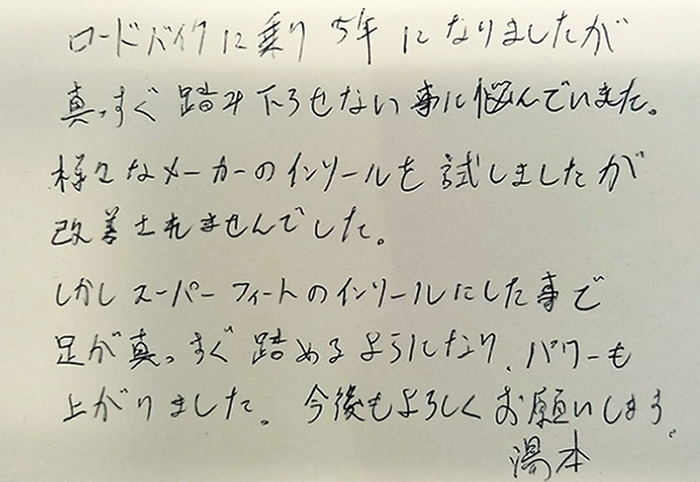 ロードバイクに乗り5年になりましたが
真っすぐ踏み下ろせない事に悩んでいました。
様々なメーカーのインソールを試しましたが
改善されませんでした。
しかしスーパーフィートのインソールにした事で
足が真っすぐ踏めるようになり、パワーも
上がりました。今後もよろしくお願いします。
湯本